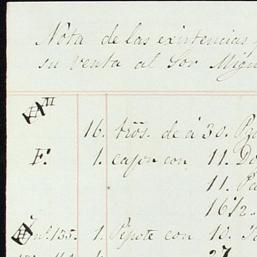 Nota de las existencias
su venta al Sor Migu
16. trōs. de á 30. Pz
F. 1. cajon con 11. Do
11. Pa
16½
Nº 135. 1. Pipote con 10.
27